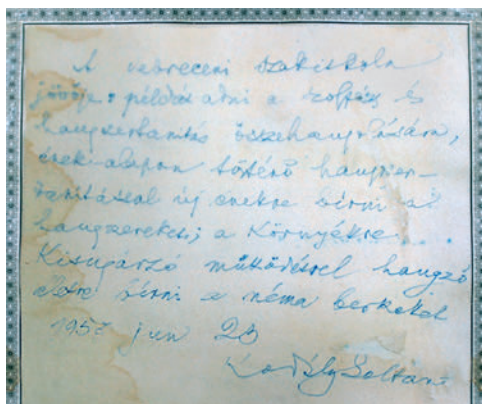 A debreceni szakiskola
jövője: példát adni a szolfézs és
hangszertanitás összehangolására,
ének-alapon történő hangszer-
tanitással új énekre birni a
hangszereket; a környékre
kisugárzó működéssel hangzó
életre birni a néma berkeket
195 jun 2
Kodály Zoltán